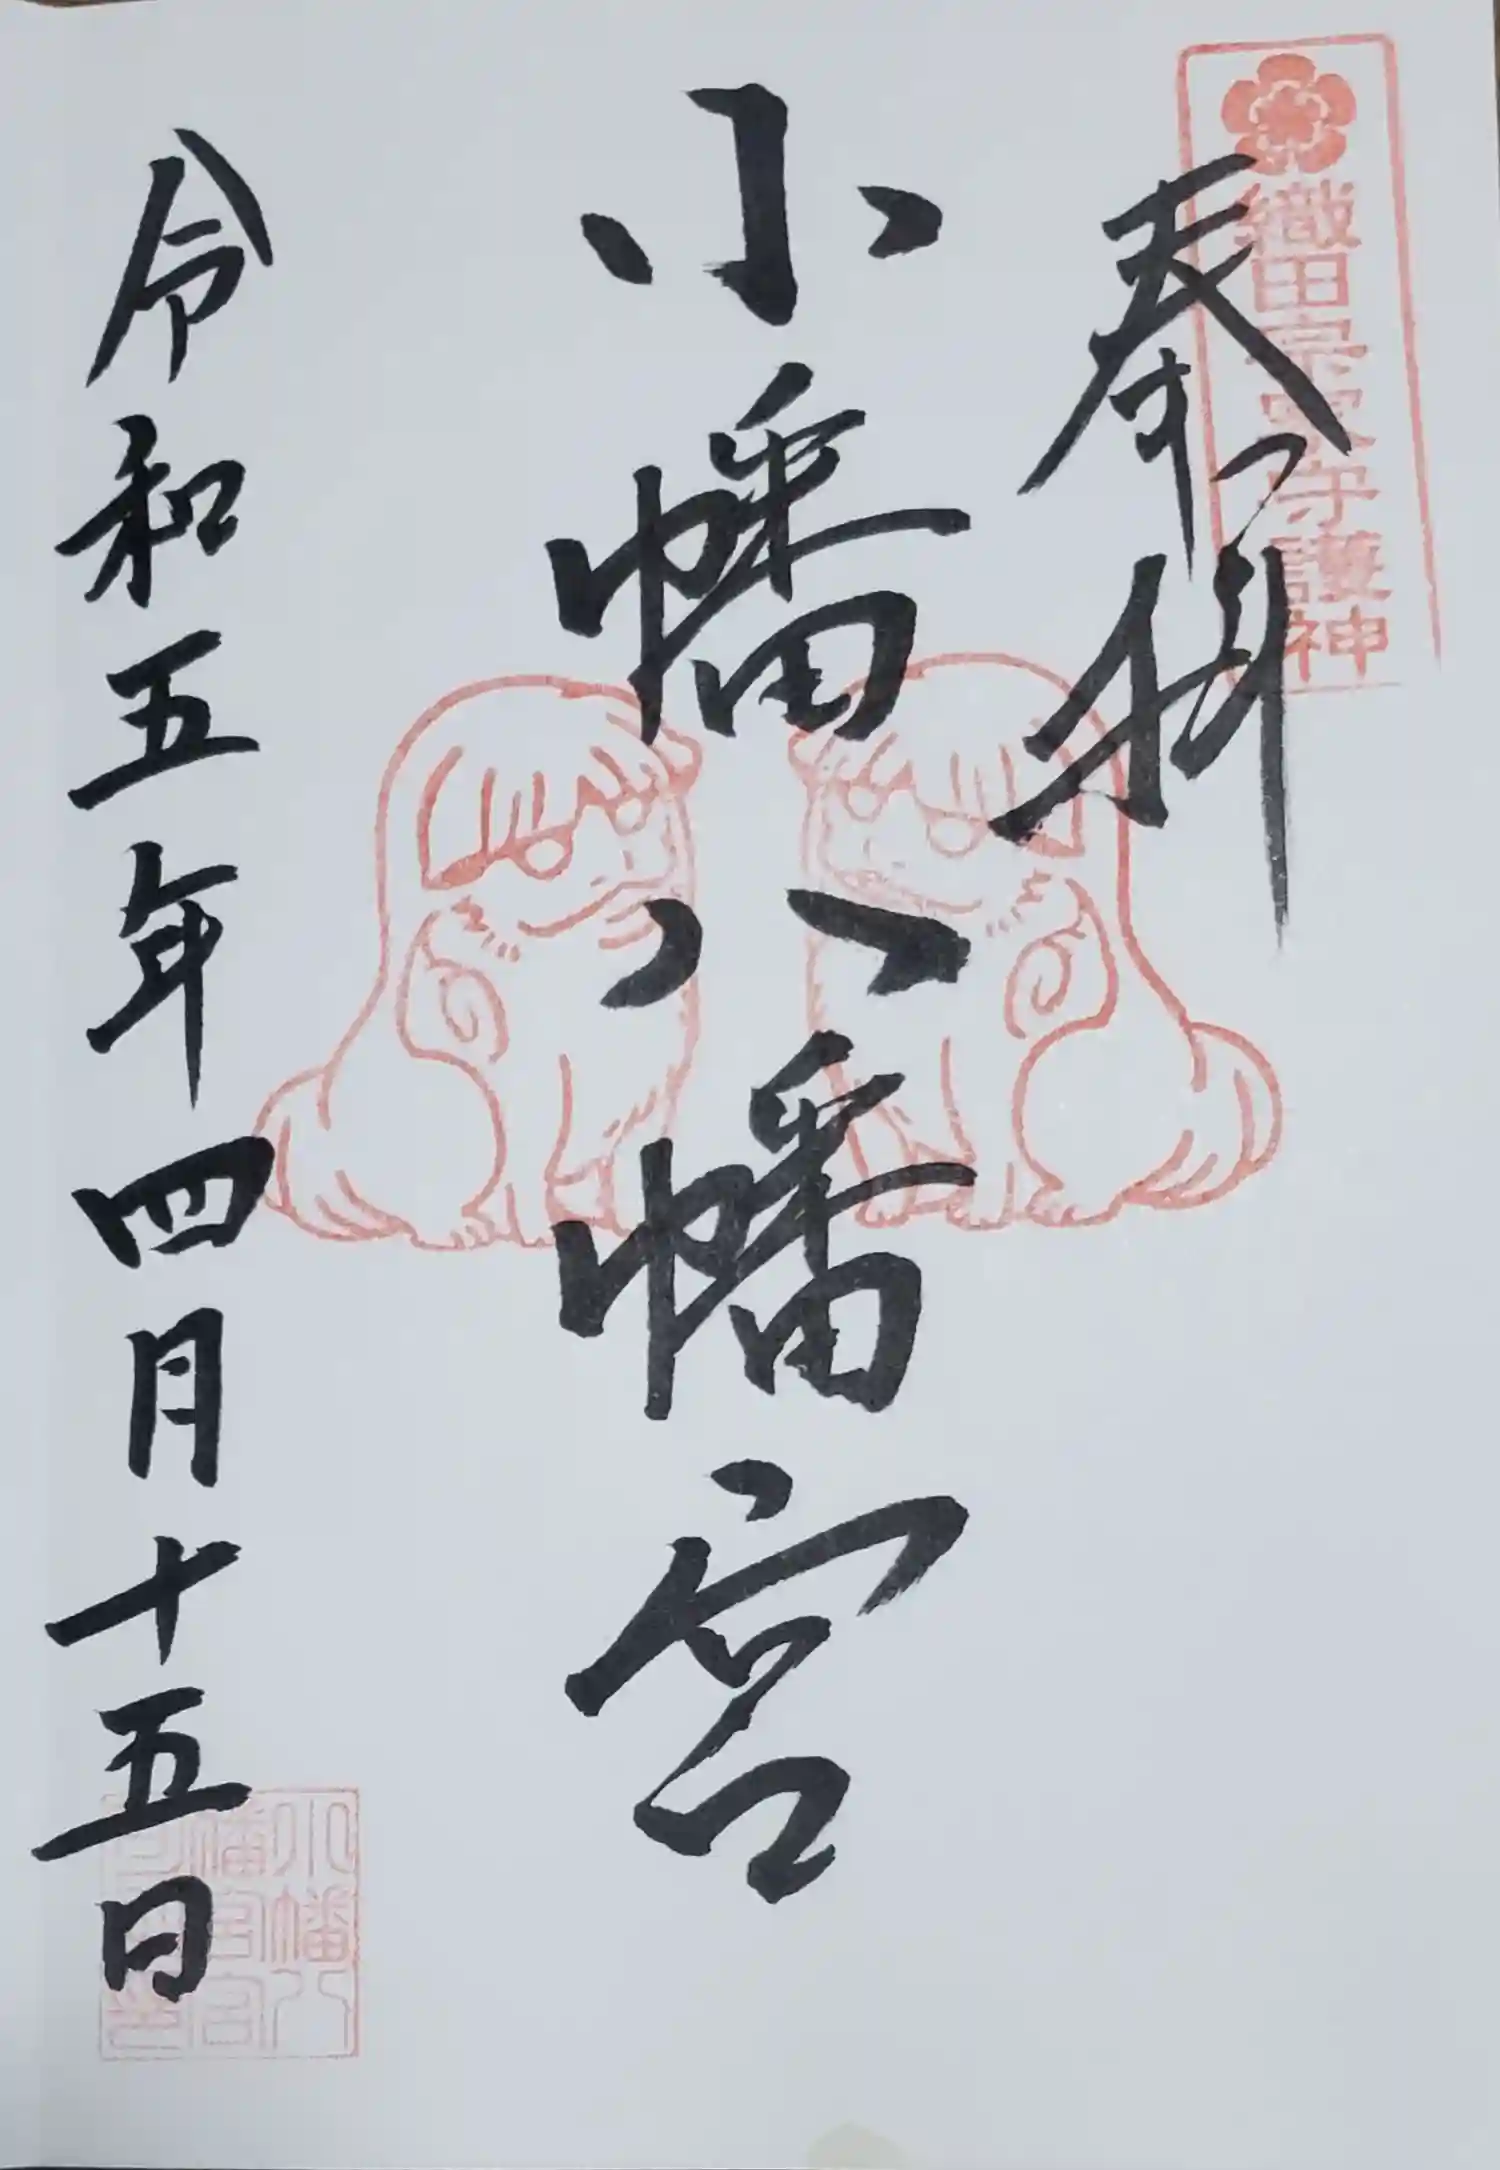 織田宗家守護神
奉拝
小幡八幡宮
令和五年四月十五日
小幡八
幡宮宮